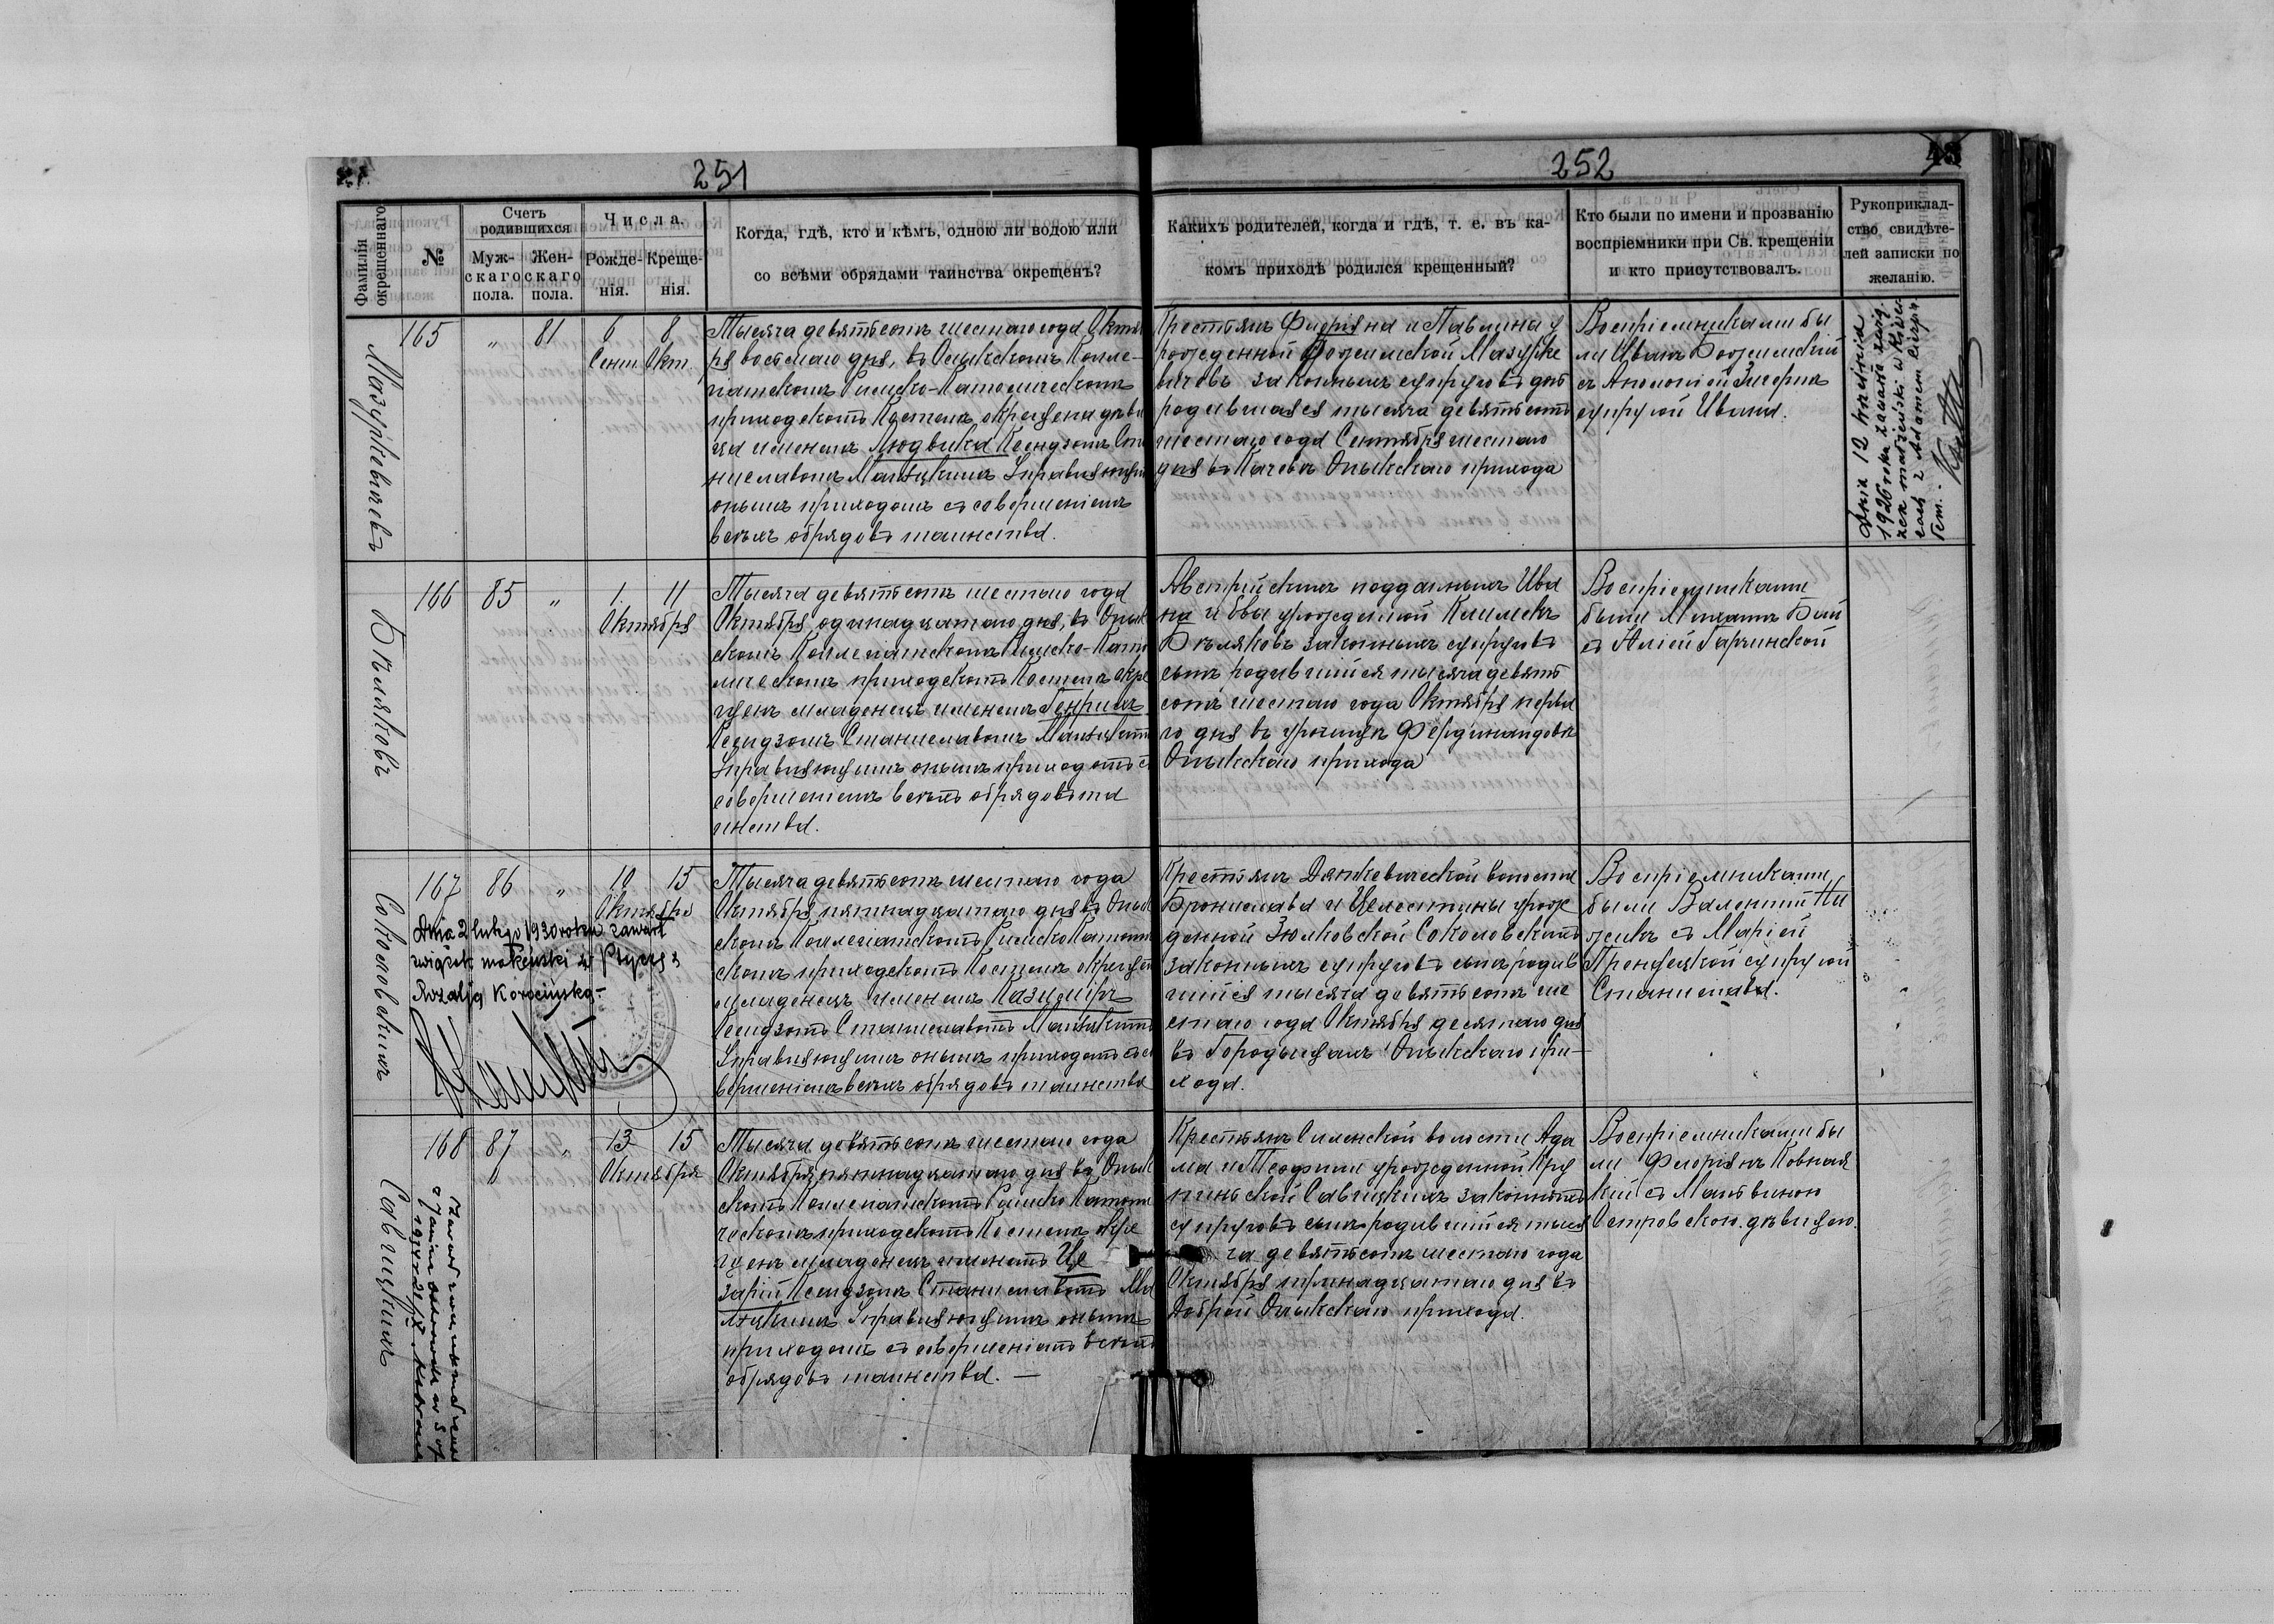 251
252
Фамилія окрещеннаго
№
Счетъ родившихся
Муж-скаго пола.
Жен-скаго пола.
Числа.
Рожде-нія.
Креще-нія.
Когда, гдѣ, кто и кѣмъ, одною ли водою или
со всѣми обрядами таинства окрещенъ?
Какихъ родителей, когда и гдѣ, т. е. въ ка-
комъ приходѣ родился крещенный?
Кто были по имени и прозванію
воспріемники при Св. крещеніи
и кто присутствовалъ.
Рукоприклад-
ство свидѣте-
лей записки по
желанію.
Мазуркевичевъ
165 " 81 6 8
Сент Окт.
Тысяча девятьсотъ шестаго года Октяб
ря восьмаго дня, въ Олыкскомъ Колле-
гіатскомъ Римско-Католическомъ
приходскомъ Костелѣ окрещена дѣви
ца именемъ Людвика Ксендзомъ Ста
ниславомъ Управляющимъ
онымъ приходомъ съ совершеніемъ
всѣхъ обрядовъ таинства.
Крестьянъ Флоріяна и Павлина у
рожденной Мазурке
вичовъ законныхъ супруговъ дочь
родившаяся тысяча девятьсотъ
шестаго года Сентября шестаго
дня въ Олыкскаго прихода
Воспріемниками бы
ли Иванъ
съ Аполоніей
супругой Ивана.
Dnia 12 kwietnia
1926 roku zawarto związ.
zek małżeński w Kiwer-
cach z Adamem
Бѣляковъ
166 85 " 1. 11
Октября
Тысяча девятьсотъ шестаго года
Октября одинадцатаго дня, въ Олык
скомъ Коллегіатскомъ Римско-Като
лическомъ приходскомъ Костелѣ окре
щенъ младенецъ именемъ Генрихъ
Ксендзомъ Станиславомъ
Управляющимъ онымъ приходомъ съ
совершеніемъ всѣхъ обрядовъ та
инства.
Австрійскихъ подданныхъ Ива
на и Евы урожденной Климекъ
Бѣляковъ законныхъ супруговъ
сынъ родившійся тысяча девять
сотъ шестаго года Октября перва
го дня въ урочищѣ Фердинандовкѣ
Олыкскаго прихода
Воспріемниками
были Михаилъ
съ Гарчинской
Соколовскихъ
167 86 " 10 15
Октября
Dnia 2 lutego 1930 roku zawarł
związek małżeński w z
Rozalją
Тысяча девятьсотъ шестаго года
Октября пятнадцатаго дня въ Олык
скомъ Коллегіатскомъ Римско Католиче
скомъ приходскомъ Костелѣ окрещен
младенецъ именемъ Казиміръ
Ксендзомъ Станиславомъ
Управляющимъ онымъ приходомъ съ со
вершеніемъ всѣхъ обрядовъ таинства
Крестьянъ волости
Бронислава и Целестины урож
денной Зюлковской Соколовскихъ
законныхъ супруговъ сынъ родив
шійся тысяча девятьсотъ ше
стаго года Октября десятаго дня
въ Городищахъ Олыкскаго при-
хода.
Воспріемниками
были Валентій
съ Маріей
супругой
Станислава.
Савицкихъ
168 87 " 13 15
Октября
Тысяча девятьсотъ шестаго года
Октября пятнадцатаго дня въ Олык
скомъ Коллегіатскомъ Римско Католи
ческомъ приходскомъ Костелѣ окре
щенъ младенецъ именемъ Це
зарій Ксендзомъ Станиславомъ
Управляющимъ онымъ
приходомъ съ совершеніемъ всѣхъ
обрядовъ таинства. —
Крестьянъ Силенской волости Ада
ма и Теофили урожденной Кру
пинской Савицкихъ законныхъ
супруговъ сынъ родившійся тыся
ча девятьсотъ шестаго года
Октября тринадцатаго дня въ
Доброй Олыкскаго прихода.
Воспріемниками бы
ли Флоріянъ
съ Мальвиною
Островскою дѣвицею.